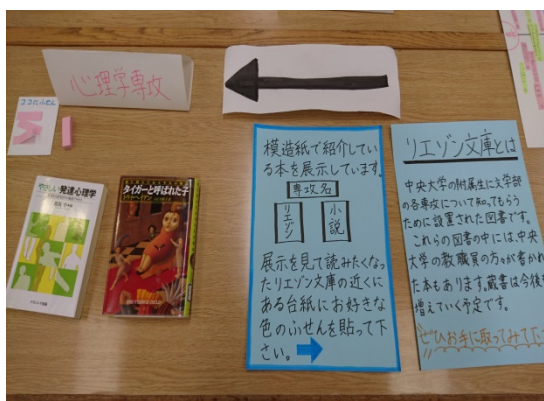 心理学専攻
ココにふせん
やさしい発達心理学
タイガーと呼ばれた子
トリイ・ヘイデン
模造紙で紹介してい
る本を展示しています。
専攻名
リエゾン
小説
展示を見て読みたくなっ
たリエゾン文庫の近くに
ある台紙にお好きな
色のふせんを貼って下
さい。
リエゾン文庫とは
中央大学の附属生に文学部
の各専攻について知ってもらう
ために設置された図書です。
これらの図書の中には、中央
大学の教職員の方々が書かれ
た本もあります。蔵書は今後も
増えていく予定です。
ぜひお手に取ってみて下さ